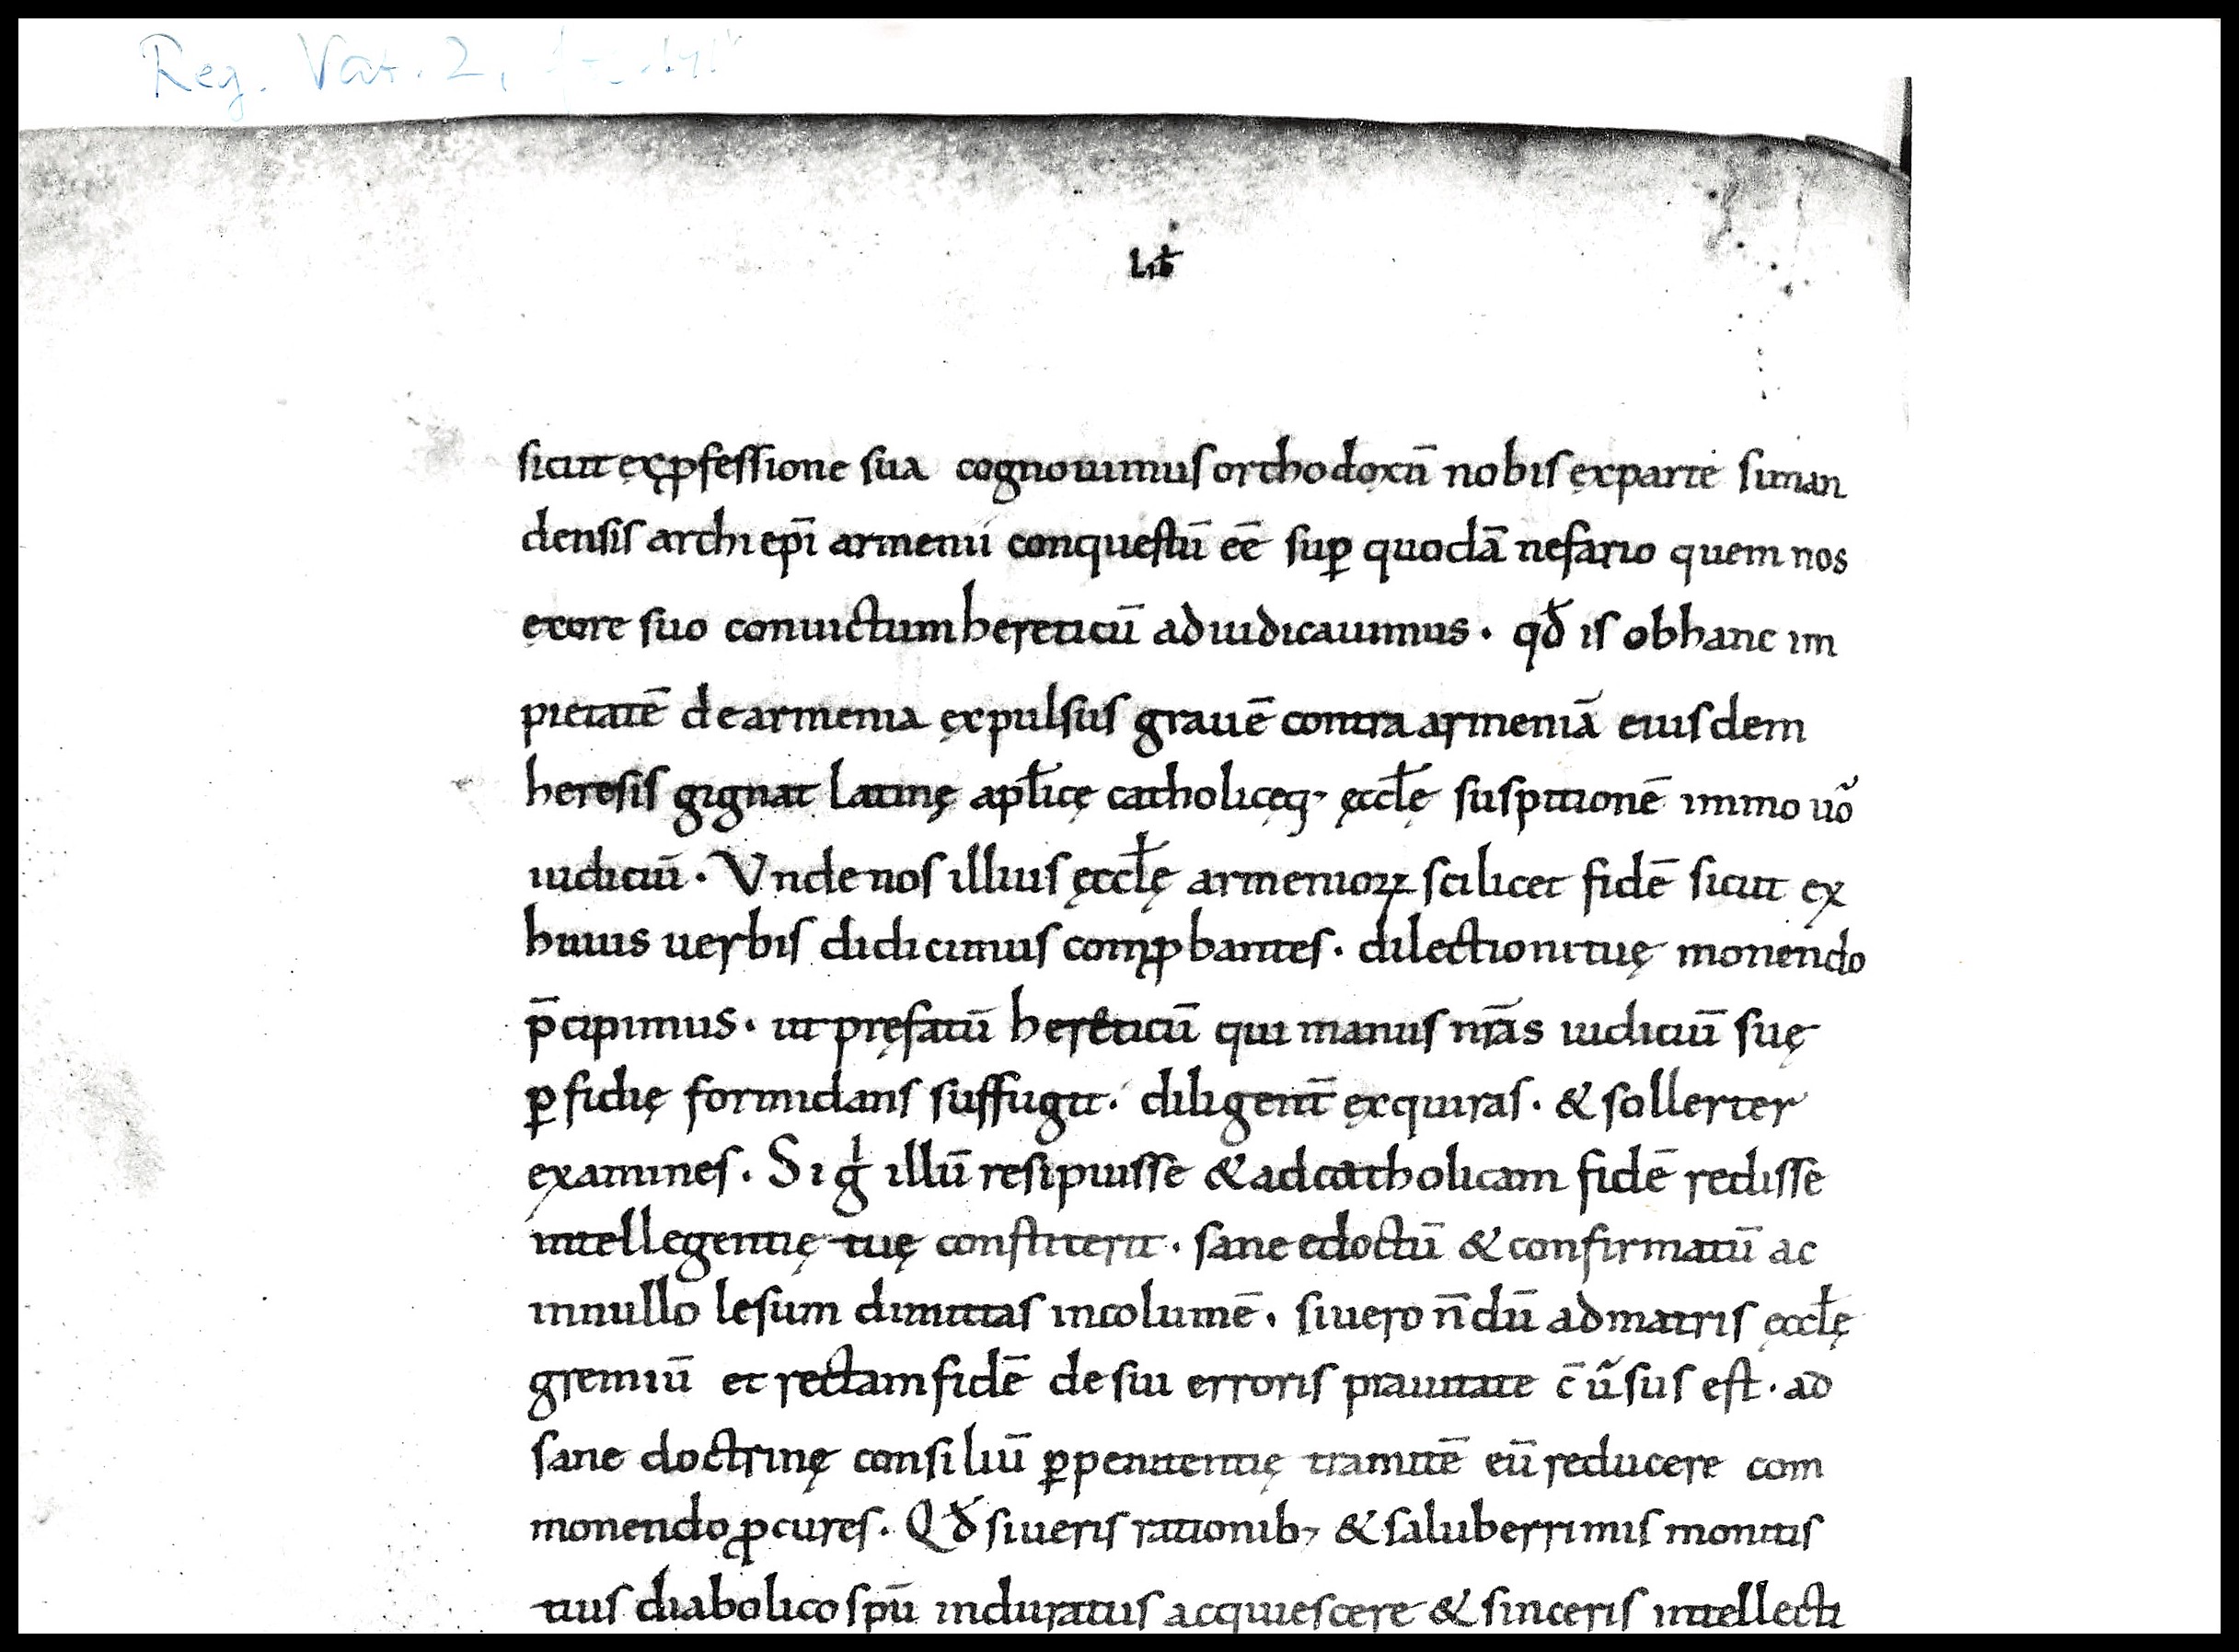 Reg. Vat. 2,
Lib̅
sicut ex ꝓfessione sua cognouimus orthodoxū nobis ex parte siman
densis archiepī armenii conquestū ēē suꝑ quodā nefario quem nos
ex ore suo conuictum hereticū adiudicauimus · qđ is ob hanc im
pietatē de armenia expulsus grauē contra armeniā eiusdem
heresis gignat latinę apłicę catholicęq; ęccłę suspitionē immo uo᷒
iudiciū · Vnde nos illius ęccłę armenioꝝ scilicet fidē sicut ex
huius uerbis didicimus comꝓbantes · dilectioni tuę monendo
p̄cipimus · ut pręfatū hereticū qui manus nr̄as iudiciū suę
ꝑfidię formidans suffugit · diligent̄ exquiras · & sollerter
examines · Si g̍ illū resipuisse & ad catholicam fidē redisse
intellegentię tuę constiterit · sane edoctū & confirmatū ac
in nullo lesum dimittas incolumē · si uero n̄dū ad matris ęccłę
gremiū et rectam fidē de sui erroris prauitate c̄u᷒sus est · ad
sane doctrinę consiliū ꝑ penitentię tramitē eū reducere com
monendo ꝓcures · Qđ si ueris rationib; & saluberrimis monitis
tuis diabolico spū induratus acquiescere & sinceris intellecti